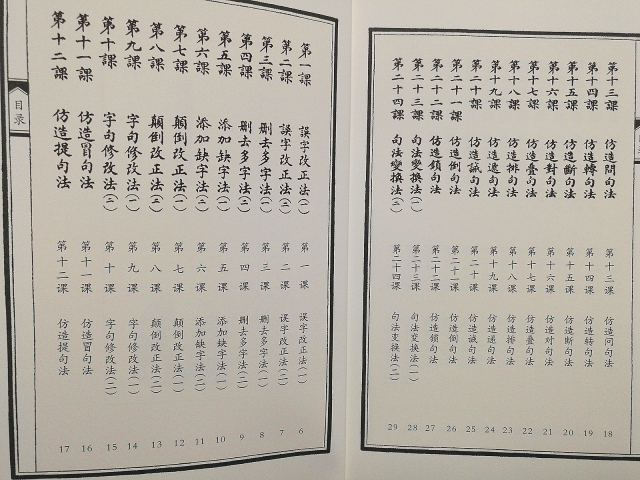 目录
第一課 誤字改正法(一) 第一课 误字改正法(一) 6
第二課 誤字改正法(二) 第二课 误字改正法(二) 7
第三課 刪去多字法(一) 第三课 删去多字法(一) 8
第四課 刪去多字法(二) 第四课 删去多字法(二) 9
第五課 添加缺字法(一) 第五课 添加缺字法(一) 10
第六課 添加缺字法(二) 第六课 添加缺字法(二) 11
第七課 顛倒改正法(一) 第七课 颠倒改正法(一) 12
第八課 顛倒改正法(二) 第八课 颠倒改正法(二) 13
第九課 字句修改法(一) 第九课 字句修改法(一) 14
第十課 字句修改法(二) 第十课 字句修改法(二) 15
第十一課 仿造冒句法 第十一课 仿造冒句法 16
第十二課 仿造提句法 第十二课 仿造提句法 17
第十三課 仿造問句法 第十三课 仿造问句法 18
第十四課 仿造轉句法 第十四课 仿造转句法 19
第十五課 仿造斷句法 第十五课 仿造断句法 20
第十六課 仿造對句法 第十六课 仿造对句法 21
第十七課 仿造疊句法 第十七课 仿造叠句法 22
第十八課 仿造排句法 第十八课 仿造排句法 23
第十九課 仿造遞句法 第十九课 仿造递句法 24
第二十課 仿造誡句法 第二十课 仿造诫句法 25
第二十一課 仿造倒句法 第二十一课 仿造倒句法 26
第二十二課 仿造鎖句法 第二十二课 仿造锁句法 27
第二十三課 句法變換法(一) 第二十三课 句法变换法(一) 28
第二十四課 句法變換法(二) 第二十四课 句法变换法(二) 29